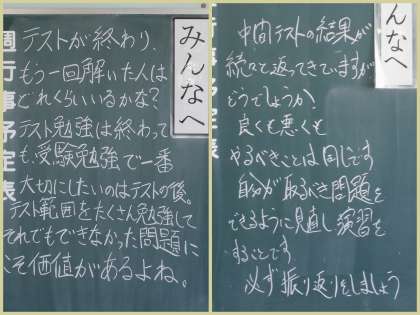 みんなへ
テストが終わり、
もう一回解いた人は
どれくらいいるかな?
テスト勉強は終わって
も、受験勉強で一番
大切にしたいのはテストの後。
テスト範囲をたくさん勉強して
それでもできなかった問題に
こそ価値があるよね。
週行事予定表
んなへ
中間テストの結果が
続々と返ってきていますが
どうでしょうか?
良くも悪くも
やるべきことは同じです
自分が取るべき問題を
できるように見直し演習を
することです
必ず振り返りをしましょう